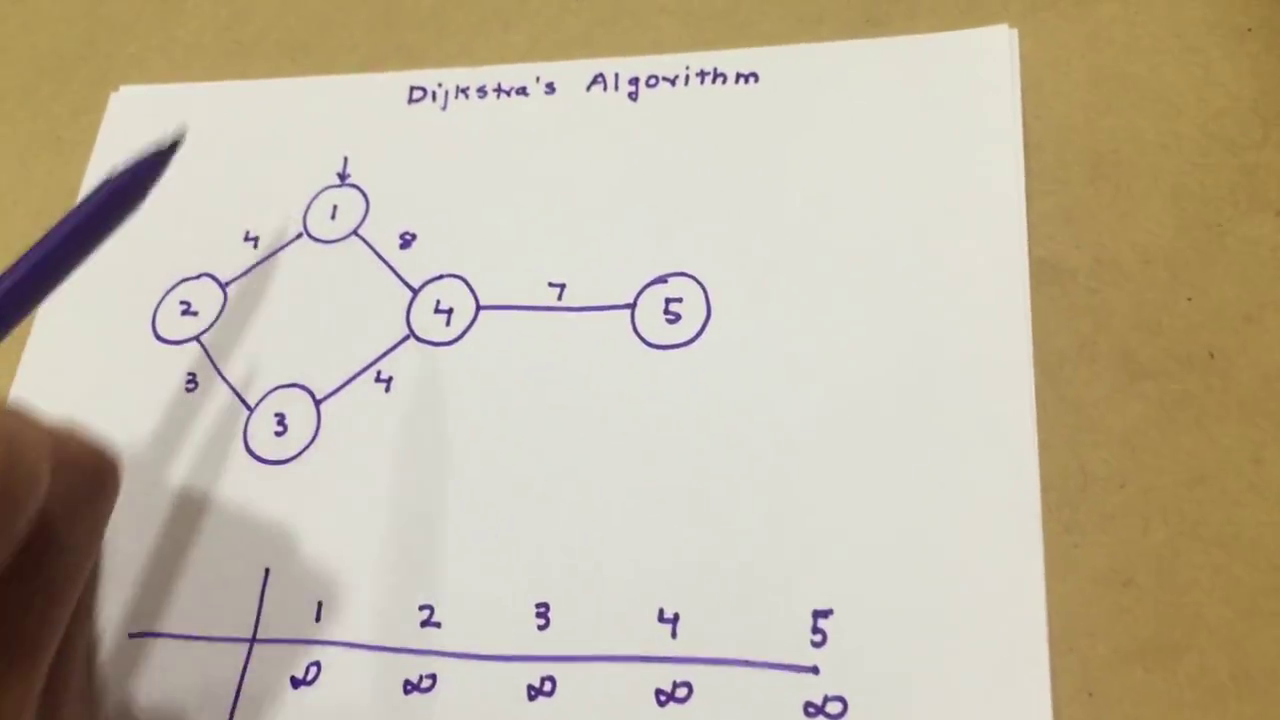 Dijkstra's Algorithm
↓
1
4 8
2 4 7 5
3 4
3
1 2 3 4 5
∞ ∞ ∞ ∞ ∞